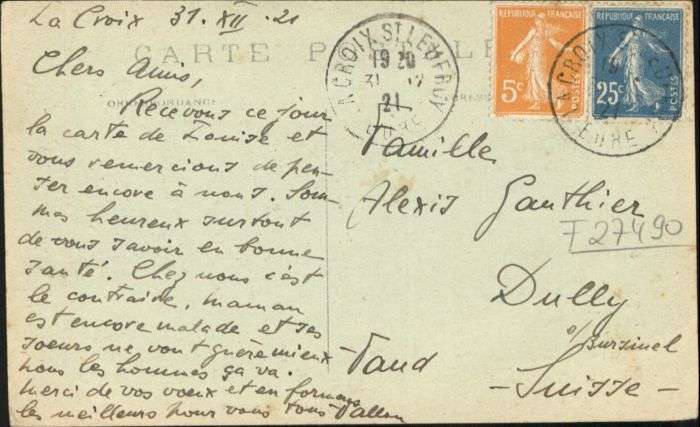 La Croix 31. XII. 21
CARTE POSTALE
Chers Amis,
Recevons ce jour
la carte de Louise et
vous remercions de pen-
ser encore à nous. Som-
mes heureux surtout
de vous savoir en bonne
santé. Chez nous c'est
le contraire, maman
est encore malade et ses
soeurs ne vont guère mieux
nous les hommes ça va.
Merci de vos voeux et en formons
les meilleurs pour vous tous
CORRESPONDANCE
LA CROIX-ST LEUFROY
19 20
31 12
21
EURE
REPUBLIQUE FRANÇAISE
5c
POSTES
REPUBLIQUE FRANÇAISE
25c
POSTES
LA CROIX-ST
EURE
Famille
Alexis Gauthier
F 27490
Dully
s/Bursinel
Vaud
- Suisse -